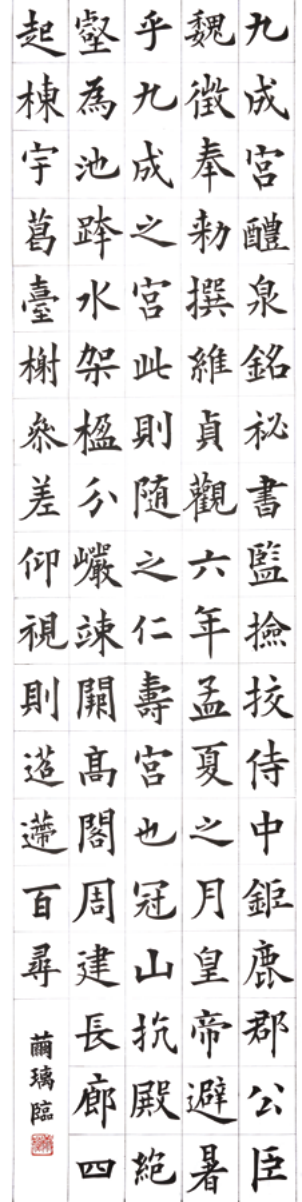 九成宮醴泉銘祕書監撿挍侍中鉅鹿郡公臣
魏徵奉勑撰維貞觀六年孟夏之月皇帝避暑
乎九成之宮此則随之仁壽宮也冠山抗殿絕
壑為池跨水架楹分巖竦闕高閣周建長廊四
起棟宇葛臺榭叅差仰視則迢遰百尋
繭璃臨